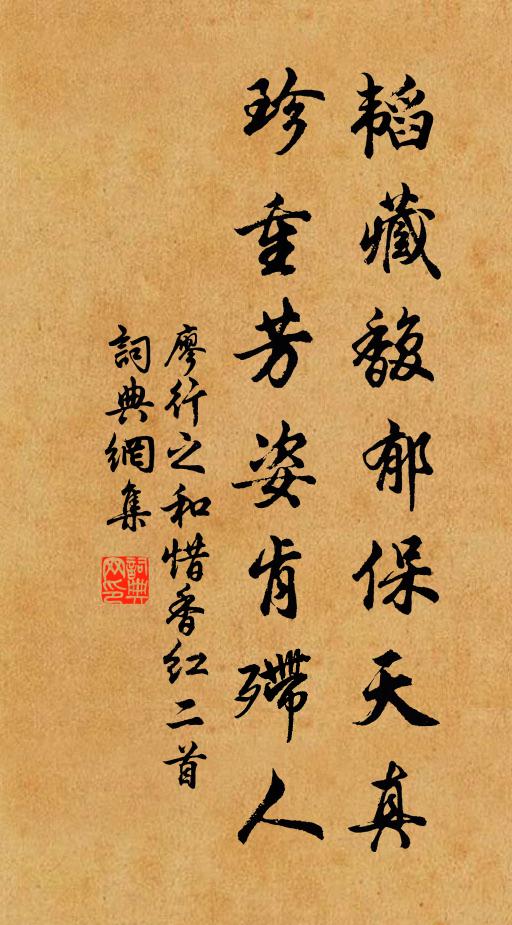 韜藏馥郁保天真
珍重芳姿肯殢人
廖行之和惜香紅二首
詞典網集
詞典网印